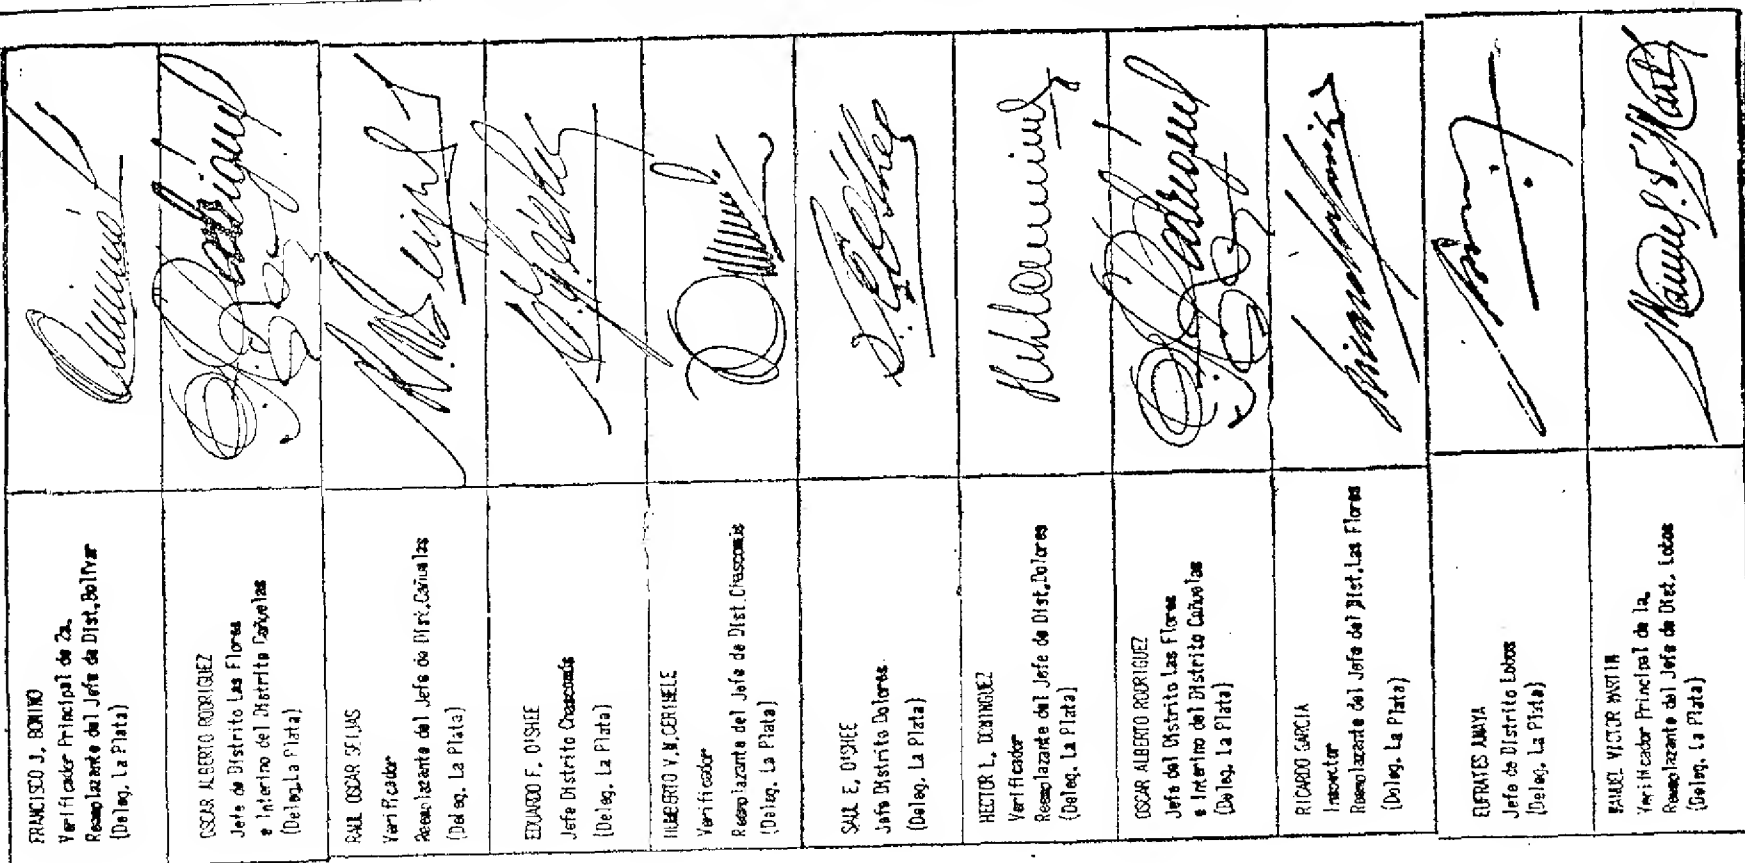 FRANCISCO J. BONINO
Verificador Principal de 2a.
Reemplazante del Jefe de Dist.Bolívar
(Deleg. La Plata)
OSCAR ALBERTO RODRIGUEZ
Jefe de Distrito Las Flores
e Interino del Distrito Cañuelas
(Deleg.La Plata)
RAUL OSCAR SEIJAS
Verificador
Reemplazante del Jefe de Distr.Cañuelas
(Deleg. La Plata)
EDUARDO F. DISHEE
Jefe Distrito Chascomús
(Deleg. La Plata)
HUMBERTO V.M.CERINELE
Verificador
Reemplazante del Jefe de Dist.Chascomús
(Deleg. La Plata)
SAUL E. DISHEE
Jefe Distrito Dolores.
(Deleg. La Plata)
HECTOR L. DOMINGUEZ
Verificador
Reemplazante del Jefe de Dist.Dolores
(Deleg. La Plata)
OSCAR ALBERTO RODRIGUEZ
Jefe del Distrito Las Flores
e Interino del Distrito Cañuelas
(Deleg. La Plata)
RICARDO GARCIA
Inspector
Reemplazante del Jefe del Dist.Las Flores
(Deleg. La Plata)
EUFRATES AMAYA
Jefe de Distrito Lobos
(Deleg. La Plata)
MANUEL VICTOR MARTIN
Verificador Principal de 1a.
Reemplazante del Jefe de Dist. Lobos
(Deleg. La Plata)